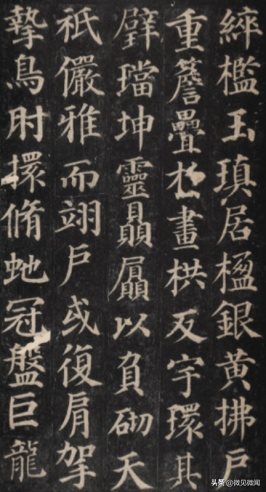 綷檻玉瑱居楹銀黄拂戶
重簷疊扵畫栱反宇環其
璧璫坤靈贔屭以負砌天
祇儼雅而翊戶或復肩挐
摯鳥肘擐脩虵冠盤巨龍
头条 @微见微闻